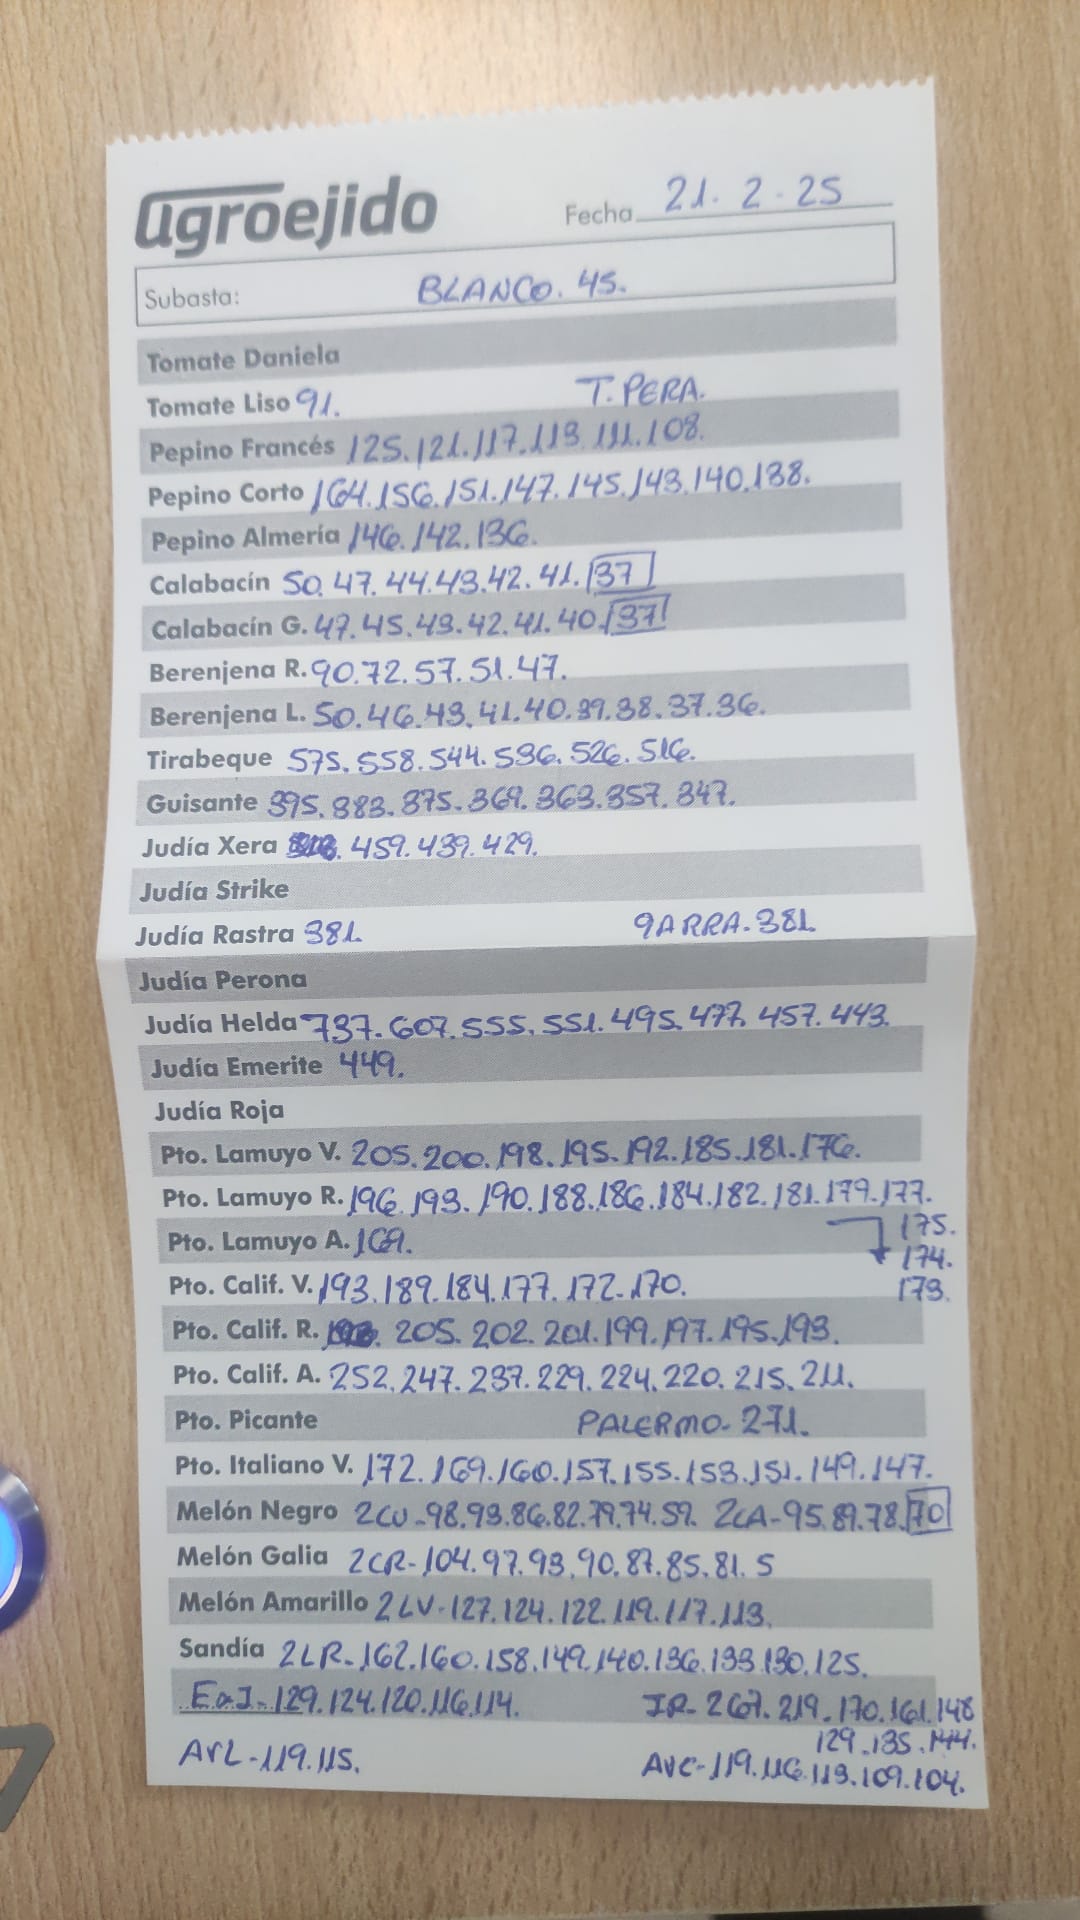 agroejido
Fecha 21. 2. 25
Subasta: BLANCO. 45.
Tomate Daniela
Tomate Liso 91. T. PERA.
Pepino Francés 125. 121. 117. 113. 111. 108.
Pepino Corto 164. 156. 151. 147. 145. 143. 140. 138.
Pepino Almería 146. 142. 136.
Calabacín 50. 47. 44. 43. 42. 41. 37
Calabacín G. 47. 45. 43. 42. 41. 40. 37
Berenjena R. 90. 72. 57. 51. 47.
Berenjena L. 50. 46. 43. 41. 40. 39. 38. 37. 36.
Tirabeque 575. 558. 544. 536. 526. 516.
Guisante 395. 383. 375. 369. 363. 357. 347.
Judía Xera 459. 439. 429.
Judía Strike
Judía Rastra 381. GARRA. 381.
Judía Perona
Judía Helda 737. 607. 555. 551. 495. 477. 457. 443.
Judía Emerite 449.
Judía Roja
Pto. Lamuyo V. 205. 200. 198. 195. 192. 185. 181. 176.
Pto. Lamuyo R. 196. 193. 190. 188. 186. 184. 182. 181. 179. 177.
175.
Pto. Lamuyo A. 169.
174.
Pto. Calif. V. 193. 189. 184. 177. 172. 170.
173.
Pto. Calif. R. 205. 202. 201. 199. 197. 195. 193.
Pto. Calif. A. 252. 247. 237. 229. 224. 220. 215. 211.
Pto. Picante PALERMO- 271.
Pto. Italiano V. 172. 169. 160. 157. 155. 153. 151. 149. 147.
Melón Negro 2CU-98. 93. 86. 82. 79. 74. 59. 2CA-95. 89. 78. 70
Melón Galia 2CR-104. 97. 93. 90. 87. 85. 81. 5
Melón Amarillo 2LV-127. 124. 122. 119. 117. 113.
Sandía 2LR-162. 160. 158. 149. 140. 136. 133. 130. 125.
129. 124. 120. 116. 114. IR-267. 219. 170. 161. 148
129. 135. 144.
AVL-119. 115. AVC-119. 116. 113. 109. 104.